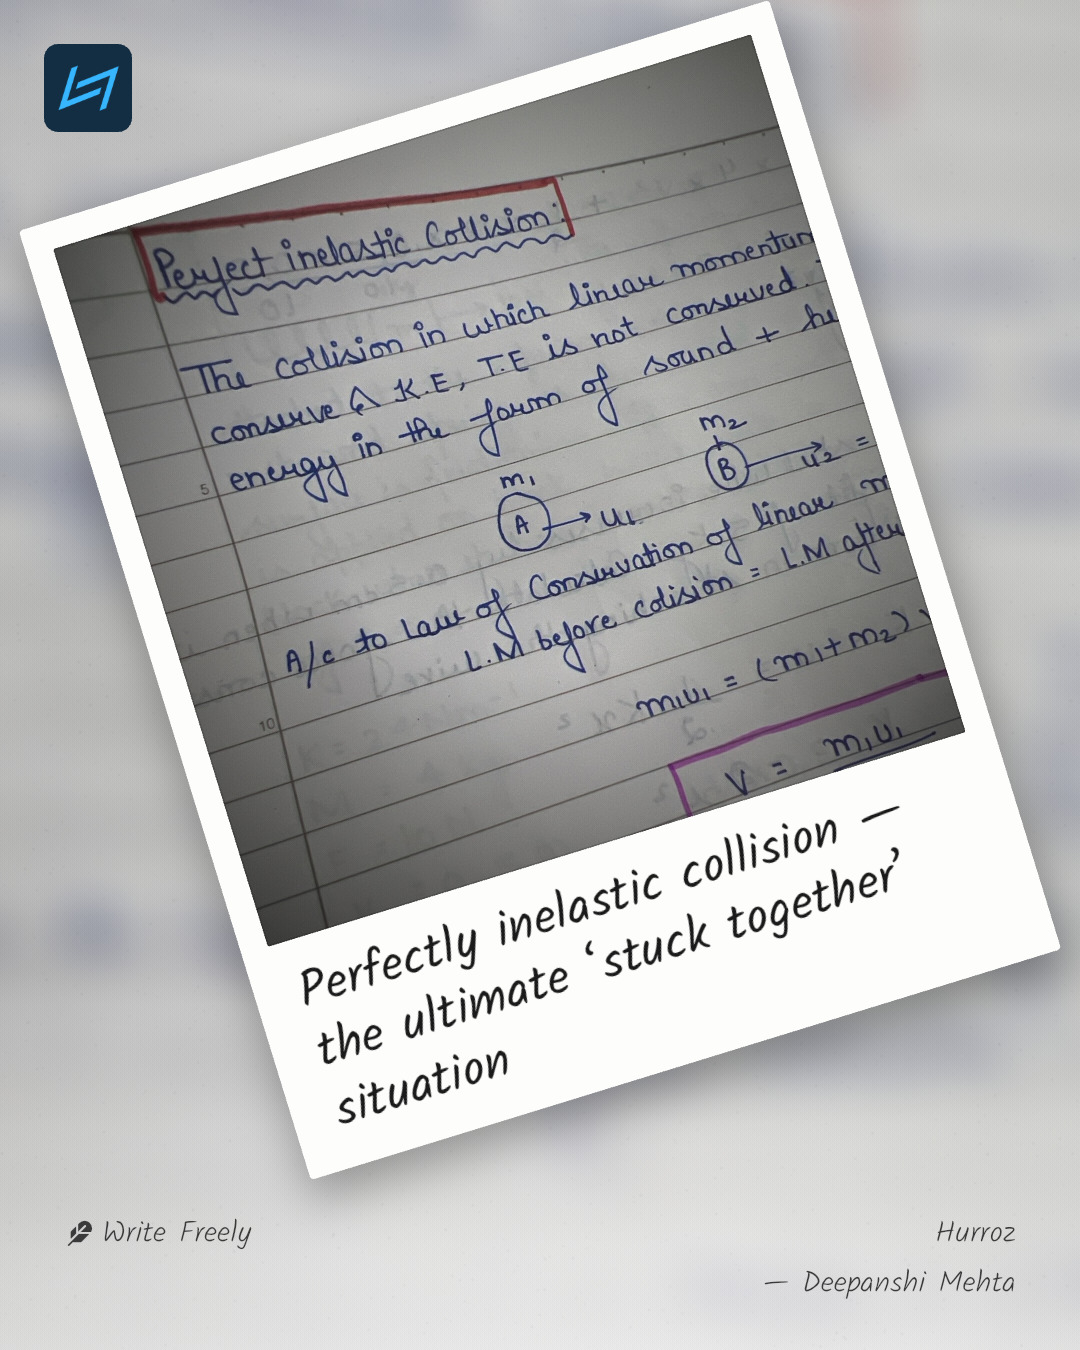 Perfect inelastic Collision:
The collision in which linear momentum
conserve & K.E, T.E is not conserved.
energy in the form of sound +
m1
m2
A
u1
B
u2 =
A/c to Law of Conservation of linear
L.M before colision = L.M after
m1u1 = (m1+m2)
V = m1u1
5
10
Perfectly inelastic collision —
the ultimate ‘stuck together’
situation
Write Freely
Hurroz
— Deepanshi Mehta